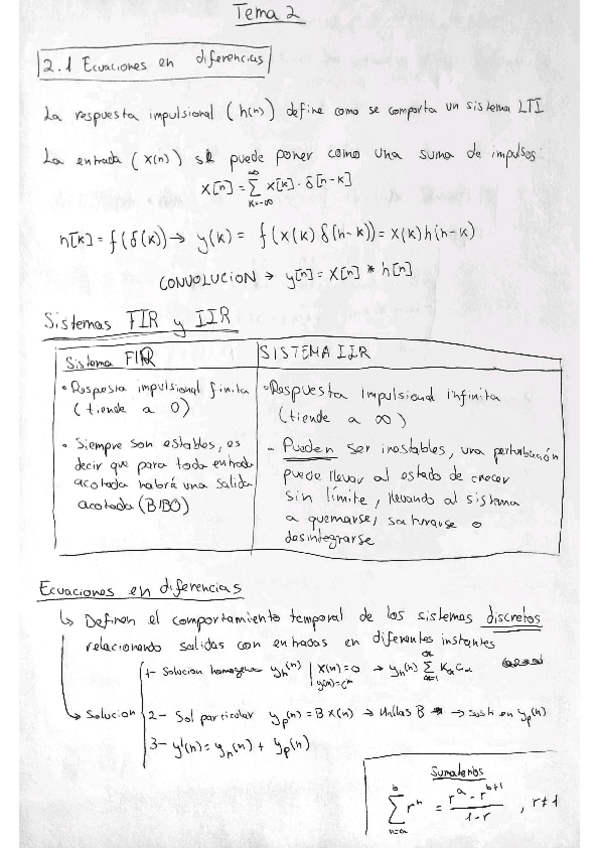 Tema 2
2.1 Ecuaciones en diferencias
La respuesta impulsional (h(n)) define como se comporta un sistema LTI
La entrada (x(n)) se puede poner como una suma de impulsos:
x[n] = ∑_{k=-∞}^{∞} x[k] · δ[n-k]
h[k] = f(δ(k)) → y(k) = f(x(k) δ(n-k)) = x(k) h(n-k)
CONVOLUCION → y[n] = x[n] * h[n]
Sistemas FIR y IIR
Sistema FIR
• Respuesta impulsional finita
(tiende a 0)
• Siempre son estables, es
decir que para toda entrada
acotada habrá una salida
acotada (BIBO)
SISTEMA IIR
• Respuesta impulsional infinita
(tiende a ∞)
- Pueden ser inestables, una perturbación
puede llevar al estado de crecer
sin límite, llevando al sistema
a quemarse, saturarse o
desintegrarse
Ecuaciones en diferencias
↳ Definen el comportamiento temporal de los sistemas discretos
relacionando salidas con entradas en diferentes instantes
↳ Solucion
1- Solucion homogenea y_h(n) | x(n)=0 → y_h(n)
2- Sol particular y_p(n) = B x(n) → Hallas B → sust en y_p(n)
3- y(n) = y_h(n) + y_p(n)
Sumatorios
∑_{n=a}^{b} r^n = (r^a - r^{b+1}) / (1-r) , r≠1